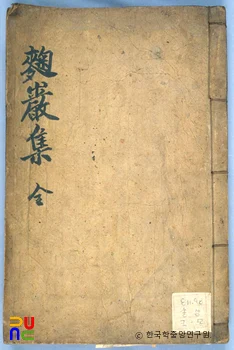 麴巖集 全
ⓒ 한국학중앙연구원